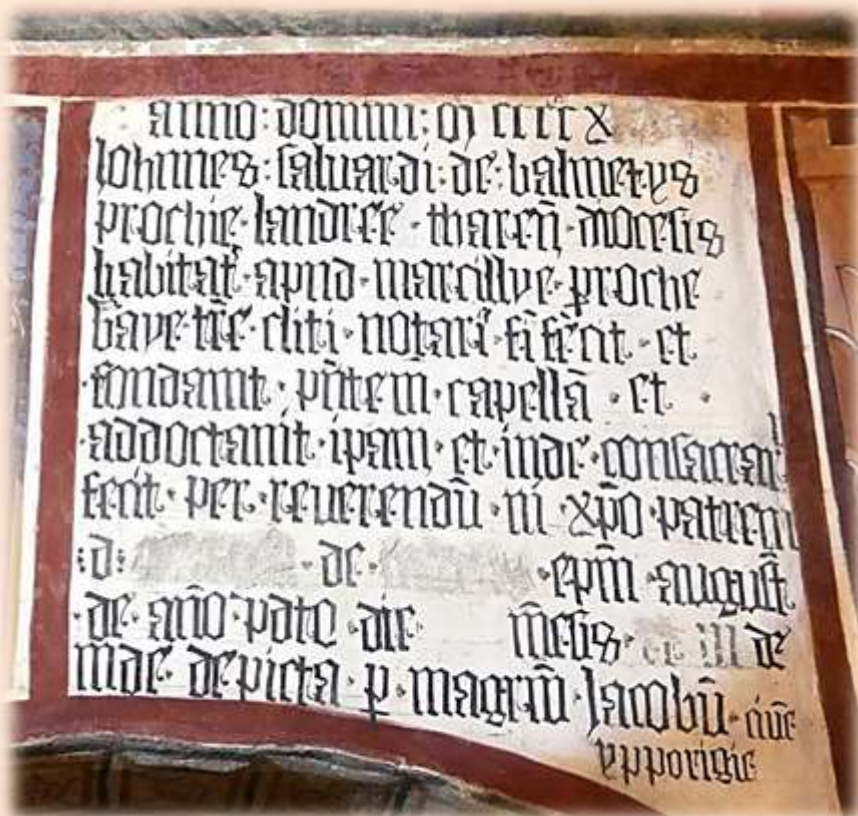 anno : domini : m cccc x
Iohannes : saluardi : de : balmetys
prochie · landree · tharen̄ · diocesis
habitat̄ · apud · marcillye · p̱roche
Gaye · tr̄e · cliti · notari · · fecit · et
fondauit · pn̄tem · capellā · et ·
addoctauit · ipam · et · inde · consacrar
fecit · per · reuerendū · ni · xp̄o · patrem
: d : · de · · ep̄m · august̄
· de · an̄o · pdto · die m̄esis · de
mde · depicta · p̱ · magrm̄ · Iacobū · ciue
ypporigie